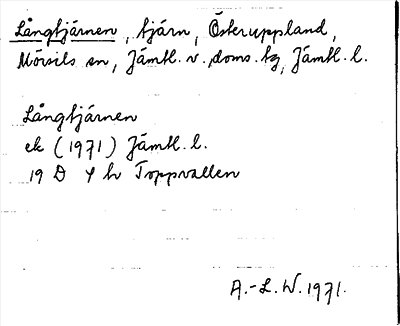 Långtjärnen, tjärn, Österuppland,
Mörsils sn, Jämtl. v., doms. tg, Jämtl. l.
Långtjärnen
ek (1971) Jämtl. l.
19 D 4 h Toppvallen
A.-L. W. 1971.